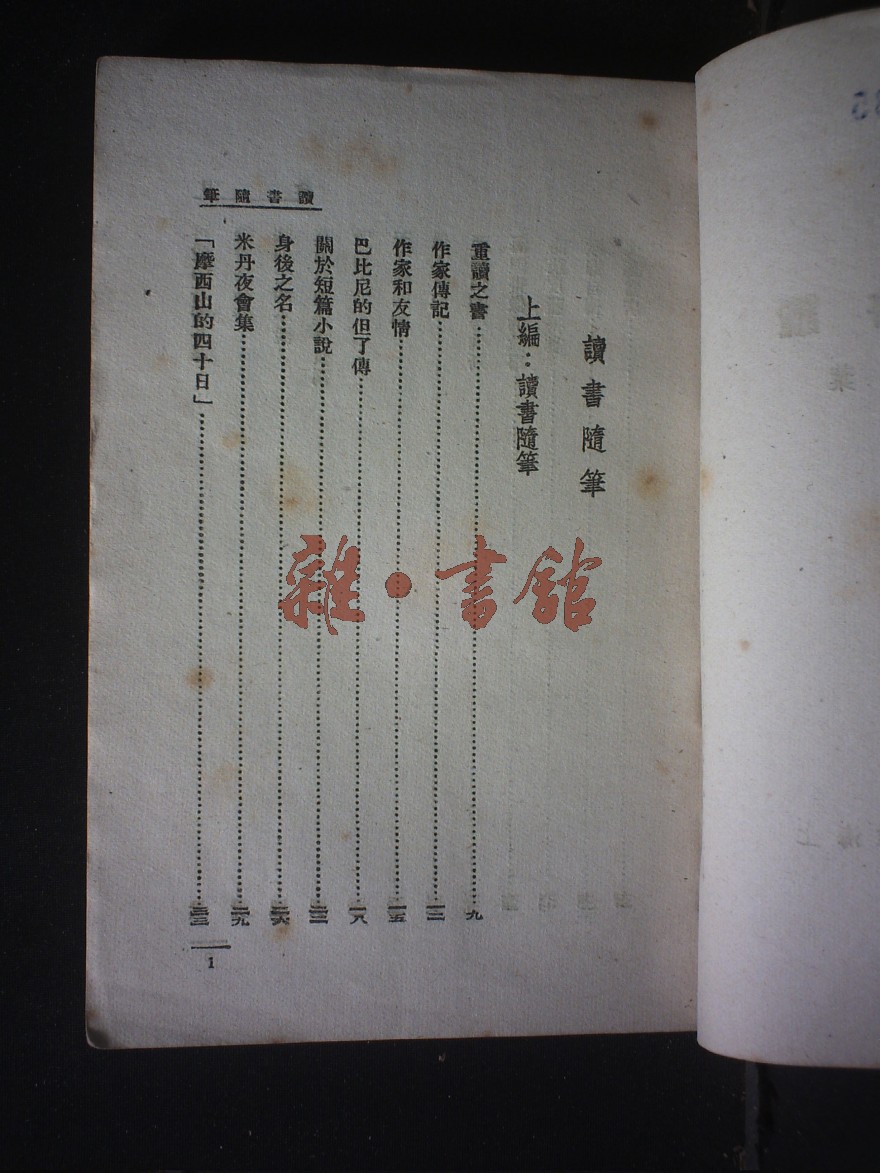 讀書隨筆
讀書隨筆
上編：讀書隨筆
重讀之書⋯⋯九
作家傳記⋯⋯一二
作家和友情⋯⋯一五
巴比尼的但丁傳⋯⋯一八
關於短篇小說⋯⋯二二
身後之名⋯⋯二六
米丹夜會集⋯⋯二九
「摩西山的四十日」⋯⋯三三
1
雜·書舘